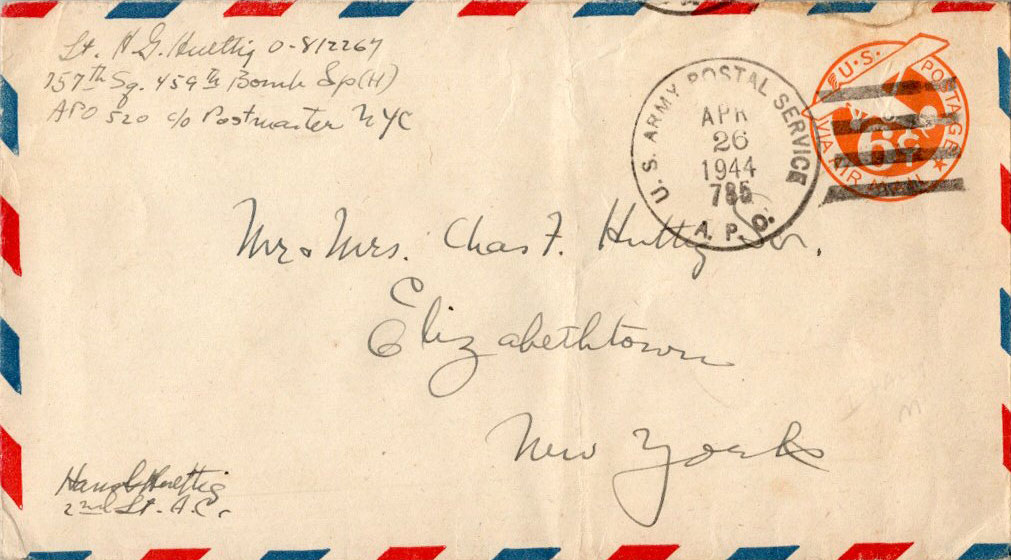 Lt. H G. Huettig O-812267
757th Sq. 459th Bomb Gp (H)
APO 520 c/o Postmaster NYC
U.S. ARMY POSTAL SERVICE
APR
26
1944
785
A.P.O.
U.S. POSTAGE
6¢
VIA AIR MAIL
Mr & Mrs. Chas F. Huttig Sr.
Elizabethtown
New York
Harold Huettig
2nd Lt. A.C.